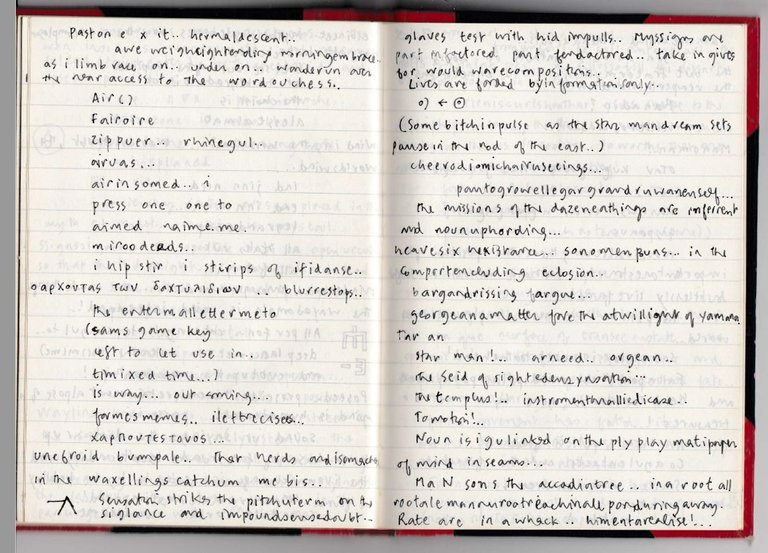 Paston e x it.. hermaldescent..
awe weigheightending morningembrace..
as i limb race on.. under on.. wonderun over
the near access to the wordouchess.
Air()
Fairoire
zippuer.. rhinegul..
airvas...
airinsomed.. i
press one one to
aimed naime.me.
miroodeads..
i hip stir i stirips of ifidanse..
φαρχουτας των δαχτυλιδιων .. blurrestops..
the entermallettermeto
(sams game key
left to let use in..
timixed time...)
is way... out aming...
formesmemes.. ilettrecises...
χαρπουτεςτονος...
unefroid bumpale.. that herds and isomaches
in the waxellings catchum me bis...
sensation strikes the pitchuterm on the
siglance and impoundsensedoubt...
glaves test with hid impulls.. Myssigns are
part mfactored part fendactored.. take in gives
for would warecompositions..
Lives are forded byinformationsonly..
o) ← ⊙
(Some bitchinpulse as the star mandream sets
pause in the nod of the east..)
cheerodiomichairuseeings...
pantogrowellegargrandruwanenself...
the missions of the dazenenthings are inferrent
and nounuphording...
heavesix hexistrance.. sonomenpuns.. in the
compertencluding eclosion..
bargandrissing fargue...
georgeanamatter fore the atwillight of yamana
Tar an
star man!.. arneed.. orgean..
the seid of sightedensynsation...
the templus!.. instromenthralliedicase..
Tomotion!..
Noun is igulinked on the ply play matipaper
of mind in seams...
Ma N sons the accadiantree... in a root all
rootalemannurootreachinale ponduringaway.
Rate are in a whack.. himentarealise!...